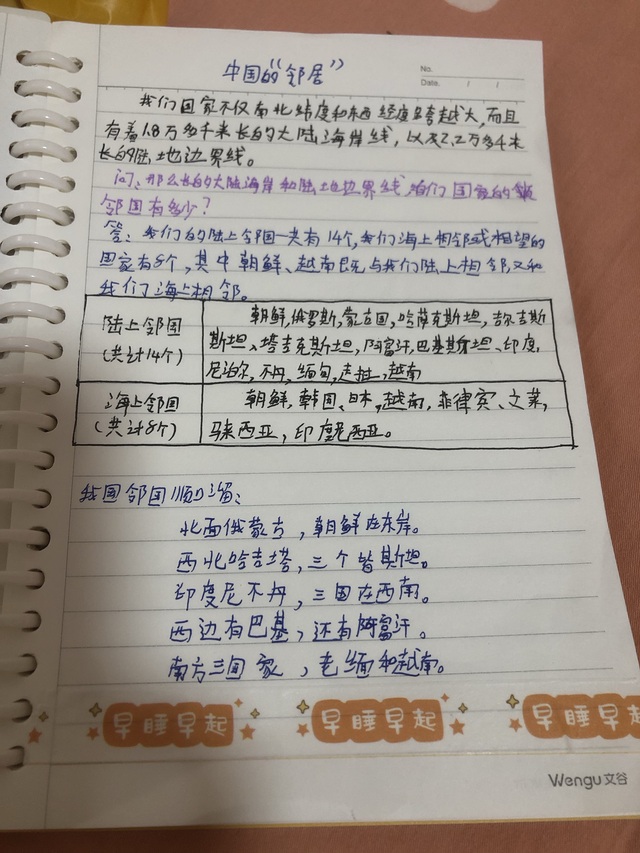 中国的“邻居”
No.
Date. / /
我们国家不仅南北纬度和东西经度跨越大,而且
有着1.8万多千米长的大陆海岸线,以及2.2万多千米
长的陆地边界线。
问:那么长的大陆海岸和陆地边界线,咱们国家的
邻国有多少?
答:我们的陆上邻国一共有14个,我们海上相邻或相望的
国家有8个,其中朝鲜、越南既与我们陆上相邻,又和
我们海上相邻。
陆上邻国
(共计14个)
朝鲜,俄罗斯,蒙古国,哈萨克斯坦,吉尔吉斯
斯坦、塔吉克斯坦,阿富汗,巴基斯坦、印度,
尼泊尔,不丹,缅甸,老挝,越南
海上邻国
(共计8个)
朝鲜,韩国、日本,越南,菲律宾、文莱,
马来西亚,印度尼西亚。
我国邻国顺口溜:
北面俄蒙古,朝鲜在东岸。
西北哈吉塔,三个皆斯坦。
印度尼不丹,三国在西南。
西边有巴基,还有阿富汗。
南方三国家,老缅和越南。
早睡早起 早睡早起 早睡早起
Wengu文谷